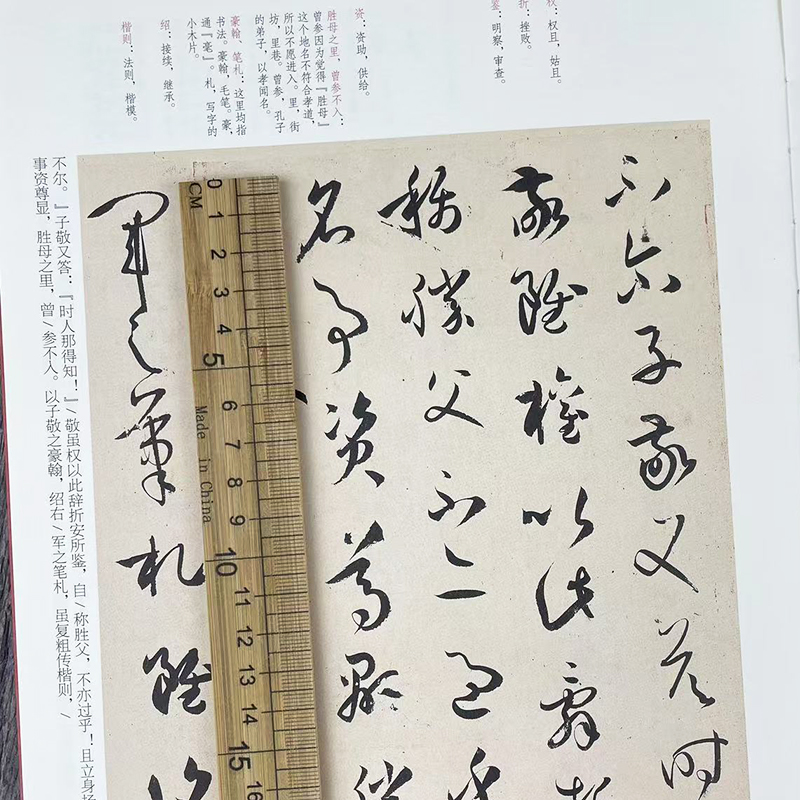 权：权且，姑且。
折：挫败。
鉴：明察，审查。
资：资助，供给。
胜母之里，曾参不入：
曾参因为觉得『胜母』
这个地名不符合孝道，
所以不愿进入。里，街
坊，里巷。曾参，孔子
的弟子，以孝闻名。
豪翰、笔札：这里均指
书法。豪翰，毛笔。豪，
通『毫』。札，写字的
小木片。
绍：接续，继承。
楷则：法则，楷模。
不尔子敬又答时
敬雖權以此辭折
稱勝父不亦過乎
名事資尊顯勝
軍之筆札雖復
0 CM 1 2 3 4 5 6 7 8 9 10 11 12 13 14 15 16
Made in China
不尔。』子敬又答：『时人那得知！』\敬虽权以此辞折安所鉴，自\称胜父，不亦过乎！且立身扬
事资尊显，胜母之里，曾\参不入。以子敬之豪翰，绍右\军之笔札，虽复粗传楷则，\